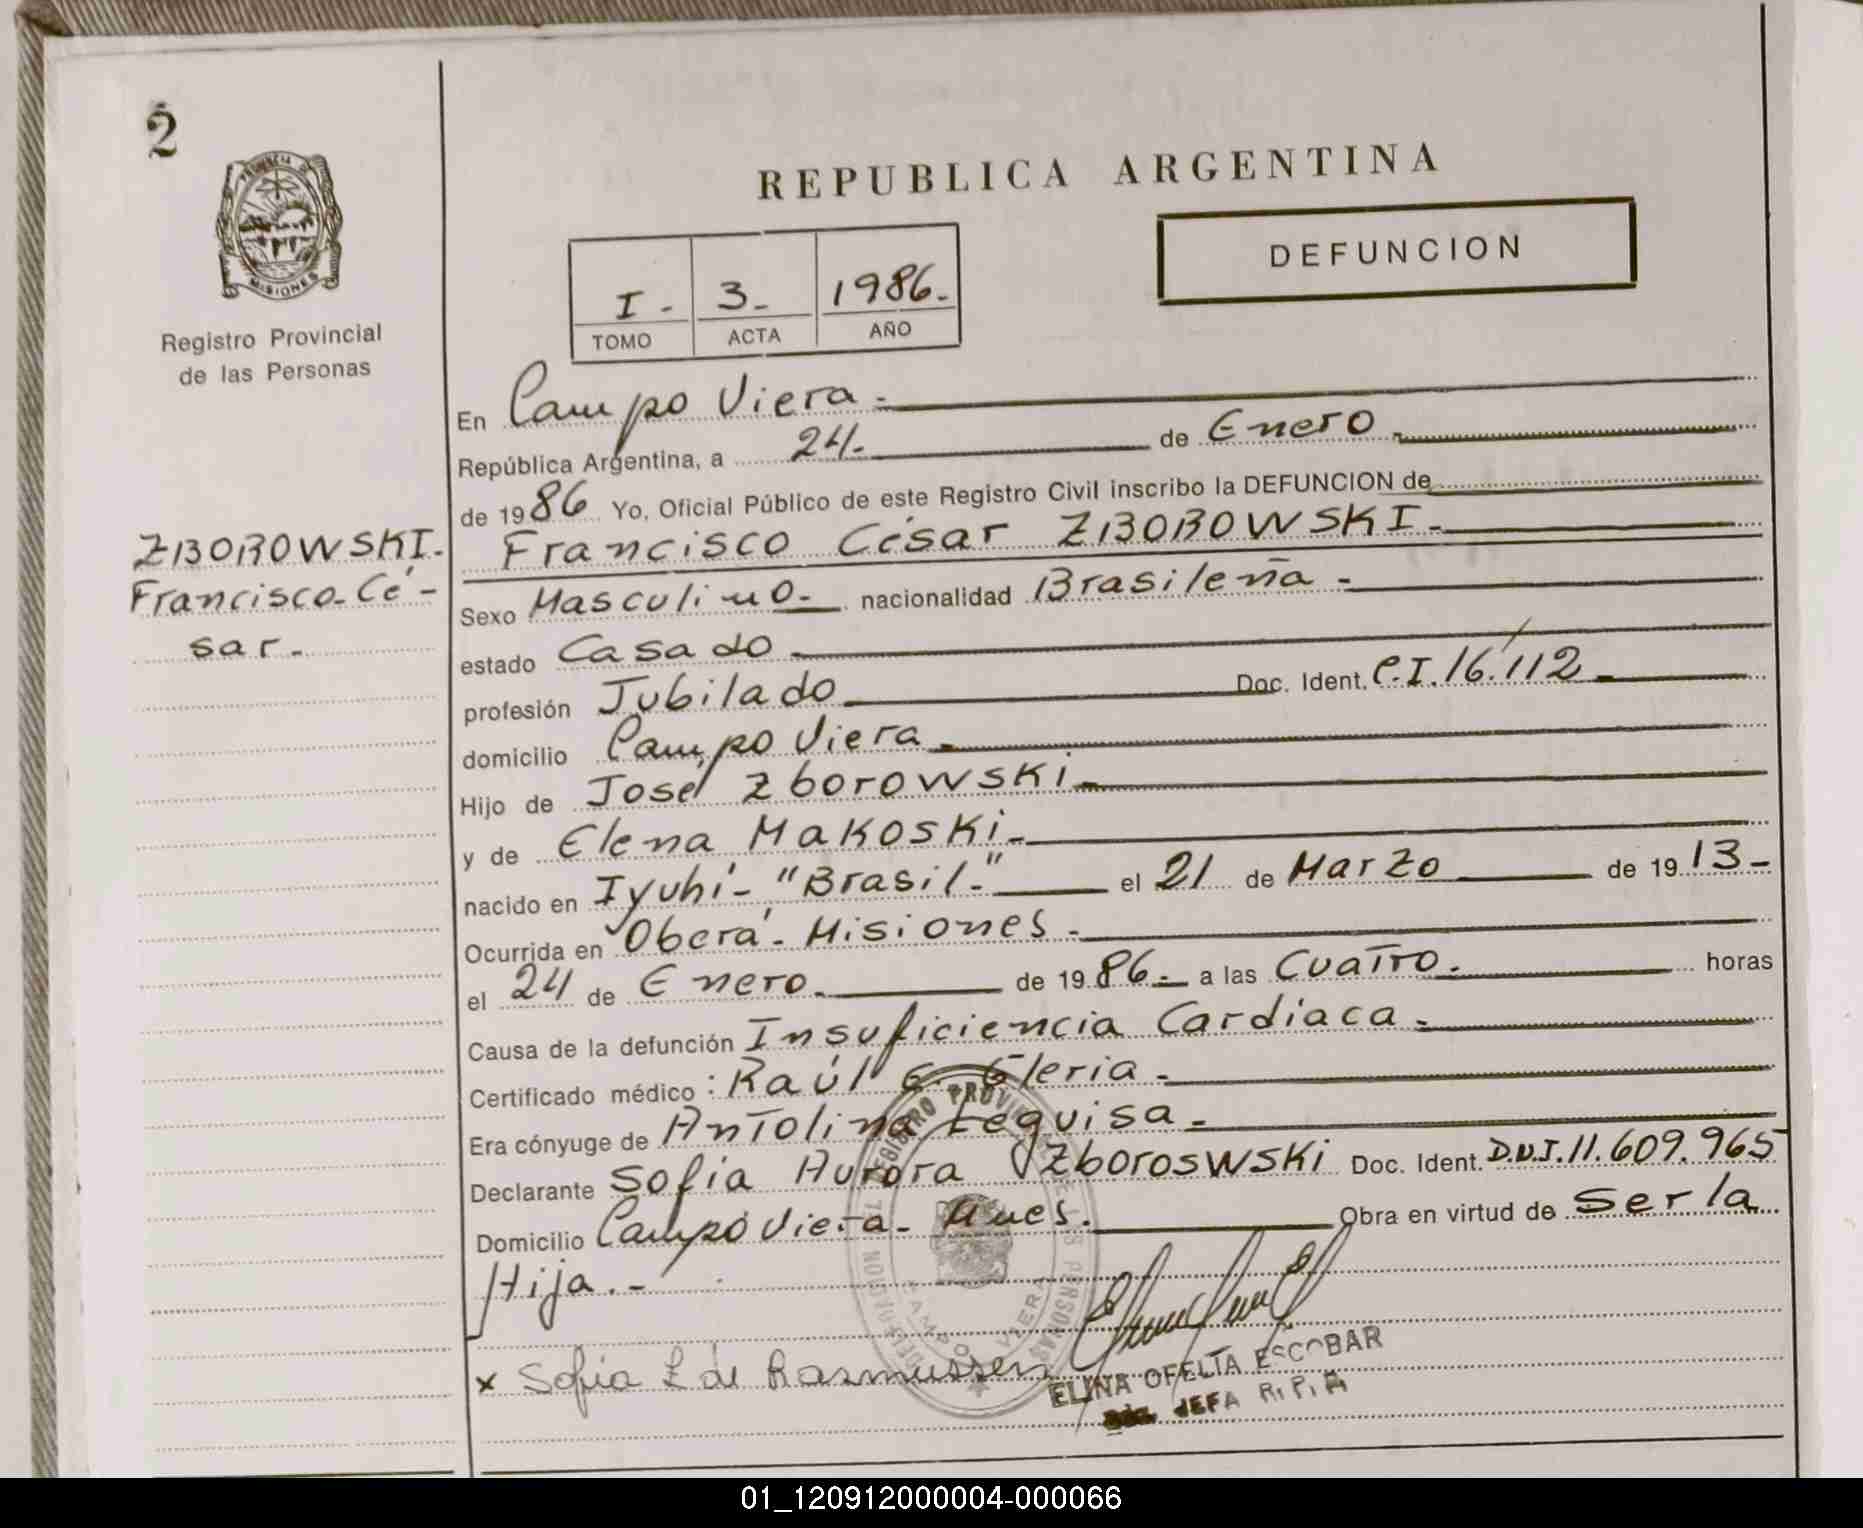 2
PROVINCIA DE
MISIONES
Registro Provincial
de las Personas
REPUBLICA ARGENTINA
DEFUNCION
I - 3_ 1986.
TOMO ACTA AÑO
En Campo Viera -
República Argentina, a 24. de Enero.
de 1986 Yo, Oficial Público de este Registro Civil inscribo la DEFUNCION de
ZBOROWSKI.
Francisco César ZBOROWSKI.
Francisco Cé-
sar.
Sexo Masculino. nacionalidad Brasileña -
estado Casado
profesión Jubilado Doc. Ident. C.I. 16.112
domicilio Campo Viera
Hijo de José Zborowski
y de Elena Makoski
nacido en Iyuhí - "Brasil-" el 21 de Marzo de 1913-
Ocurrida en Oberá - Misiones -
el 24 de Enero. de 1986. a las Cuatro. horas
Causa de la defunción Insuficiencia Cardiaca.
Certificado médico : Raúl E. Gleria -
Era cónyuge de Antolina Leguisa -
Declarante Sofia Aurora Zboroswski Doc. Ident. D.N.I. 11.609.965
Domicilio Campo Viera - Mnes. Obra en virtud de Ser la
Hija.-
x Sofia Z de Rasmussen
ELINA OFELIA ESCOBAR
JEFA R. P.
REGISTRO PROVINCIAL DE LAS PERSONAS
DELEGACION
CAMPO VIERA
01_120912000004-000066